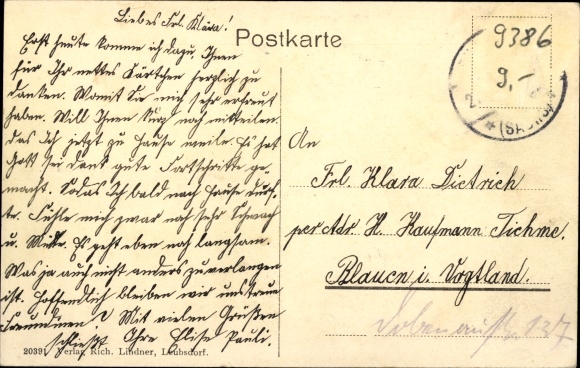 Liebes Frl. Klara!
Erst heute komme ich dazu, Ihnen
für Ihr nettes Kärtchen herzlich zu
danken. Womit Sie mich sehr erfreut
haben. Will Ihnen kurz noch mitteilen,
das ich jetzt zu Hause weile. Es hat
Gott sei dank gute Fortschritte ge-
macht. Sodas ich bald nach Hause durf-
te. Fühle mich zwar noch sehr schwach
u. Müde. Es geht eben noch langsam.
Was ja auch nicht anders zu verlangen
ist. Hoffendlich bleiben wir uns treue
Freundinnen? Mit vielen Grüßen
schließt Ihre Elise Pauli.
Postkarte
9386
9,-
An
Frl. Klara Dietrich
per Adr. H. Kaufmann Tichme.
Plauen i. Vogtland.
127
20391 Verlag Rich. Lindner, Leubsdorf.